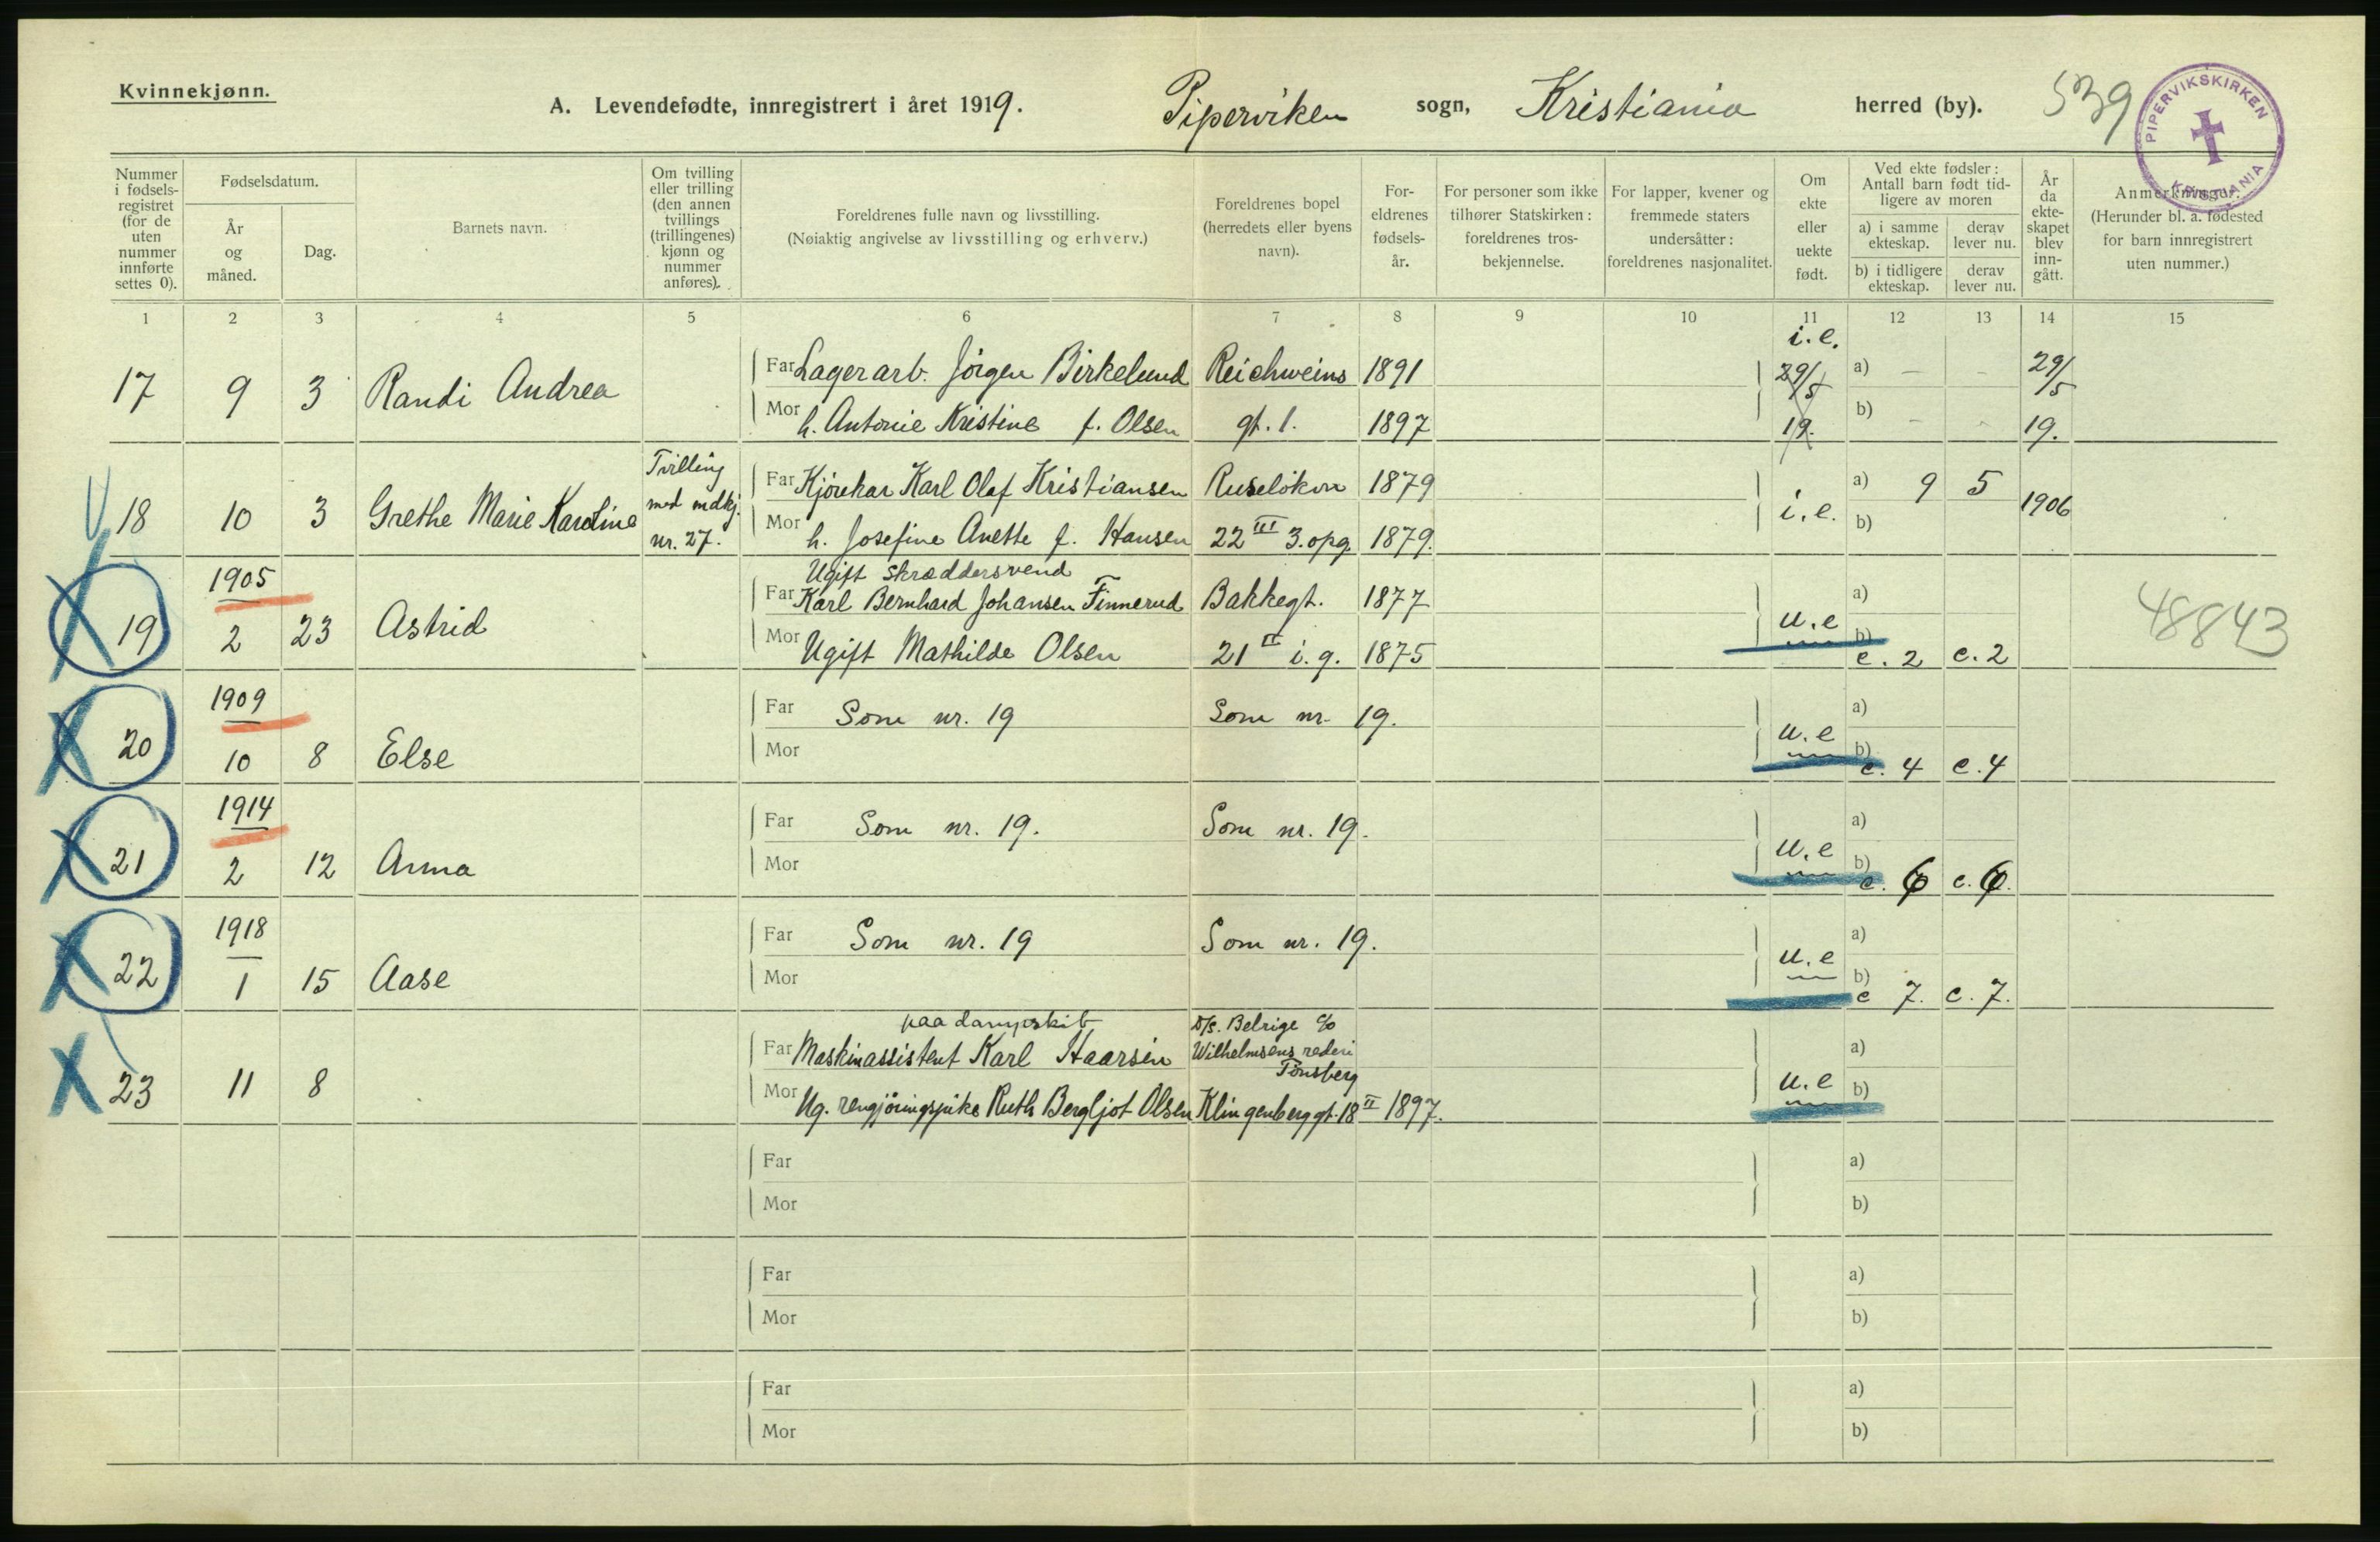 Kvinnekjønn.
A. Levendefødte, innregistrert i året 1919. Piperviken sogn, Kristiania herred (by). 539
PIPERVIKSKIRKEN KRISTIANIA
Nummer i fødsels-registret (for de uten nummer innførte settes 0).
Fødselsdatum.
År og måned.
Dag.
Barnets navn.
Om tvilling eller trilling (den annen tvillings (trillingenes) kjønn og nummer anføres).
Foreldrenes fulle navn og livsstilling.
(Nøiaktig angivelse av livsstilling og erhverv.)
Foreldrenes bopel (herredets eller byens navn).
For-eldrenes fødsels-år.
For personer som ikke tilhører Statskirken: foreldrenes tros-bekjennelse.
For lapper, kvener og fremmede staters undersåtter: foreldrenes nasjonalitet.
Om ekte eller uekte født.
Ved ekte fødsler: Antall barn født tid-ligere av moren
a) i samme ekteskap.
derav lever nu.
b) i tidligere ekteskap.
derav lever nu.
År da ekte-skapet blev inn-gått.
Anmerkninger.
(Herunder bl. a. fødested for barn innregistrert uten nummer.)
1 2 3 4 5 6 7 8 9 10 11 12 13 14 15
i.e.
17 9 3 Randi Andrea Far Lagerarb. Jörgen Birkelund Reichweins 1891 29/5 a) – – 29/5
Mor h. Antonie Kristine f. Olsen gt. 1. 1897 19. b) – – 19.
Tvilling
18 10 3 Grethe Marie Karoline med mdkj. Far Kjörekar Karl Olaf Kristiansen Ruselökvn 1879 i.e. a) 9 5 1906
nr. 27. Mor h. Josefine Anette f. Hansen 22 III 3. opg. 1879. b)
1905 Ugift skræddersvend
19 2 23 Astrid Far Karl Bernhard Johansen Finnerud Bakkegt. 1877 u.e a) 48843
Mor Ugift Mathilde Olsen 21 II i. g. 1875 b) c. 2 c. 2
1909 Far Som nr. 19 Som nr. 19. a)
20 10 8 Else Mor u.e b) c. 4 c. 4
1914 Far Som nr. 19. Som nr. 19. a)
21 2 12 Anna Mor u.e b) c. 6 c. 6.
1918 Far Som nr. 19 Som nr. 19. a)
22 1 15 Aase Mor u.e b) c 7. c. 7.
paa dampskib D/s. Belrige c/o
Far Maskinassistent Karl Haarsen Wilhelmsens rederi a)
Tönsberg
23 11 8 Mor Ug. rengjöringspike Ruth Bergljot Olsen Klingenberggt. 18 II 1897. u.e b)
Far a)
Mor b)
Far a)
Mor b)
Far a)
Mor b)